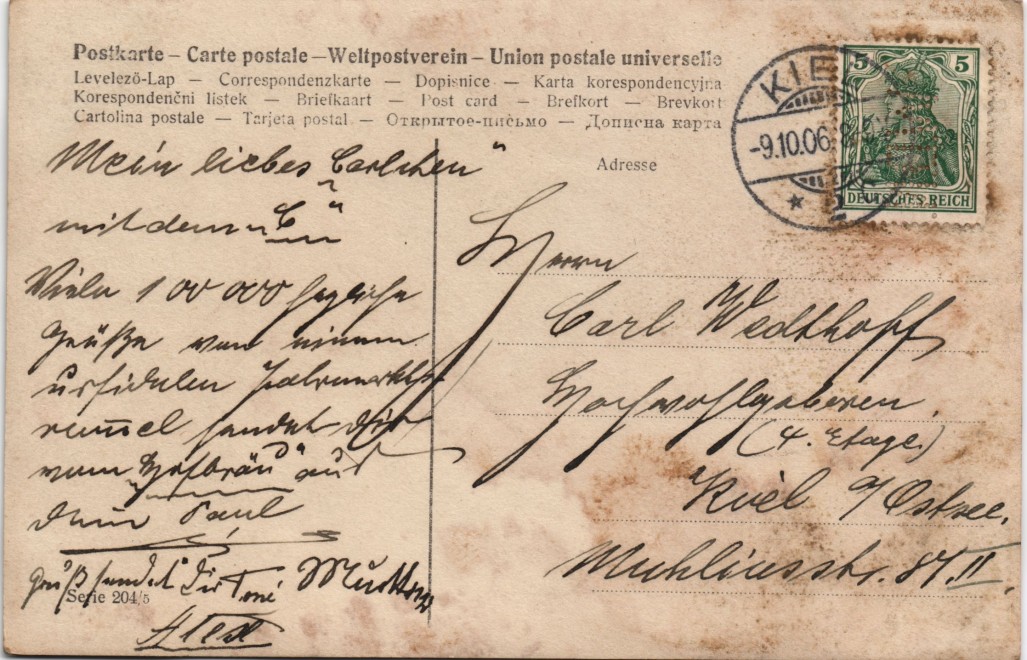 Postkarte – Carte postale – Weltpostverein – Union postale universelle
Levelező-Lap — Correspondenzkarte — Dopisnice — Karta korespondencyjna
Korespondenční lístek — Briefkaart — Post card — Brefkort — Brevkort
Cartolina postale — Tarjeta postal — Открытое-письмо — Дописна карта
Adresse
KIEL
-9.10.06. 8-9
5 5
DEUTSCHES REICH
Mein liebes Carlchen"
mit dem "C"
Viele 100 000
Grüße von einem
urfidelen Jahrmarkts-
rummel sendet Dir
vom Hofbräu" aus
Dein Paul
Gruß sendet Dir Toni
Serie 204/5
Alex
Herrn
Carl Wedthoff
Hochwohlgeboren.
(4. Etage.)
Kiel a/Ostsee.
Muhliusstr. 87. II